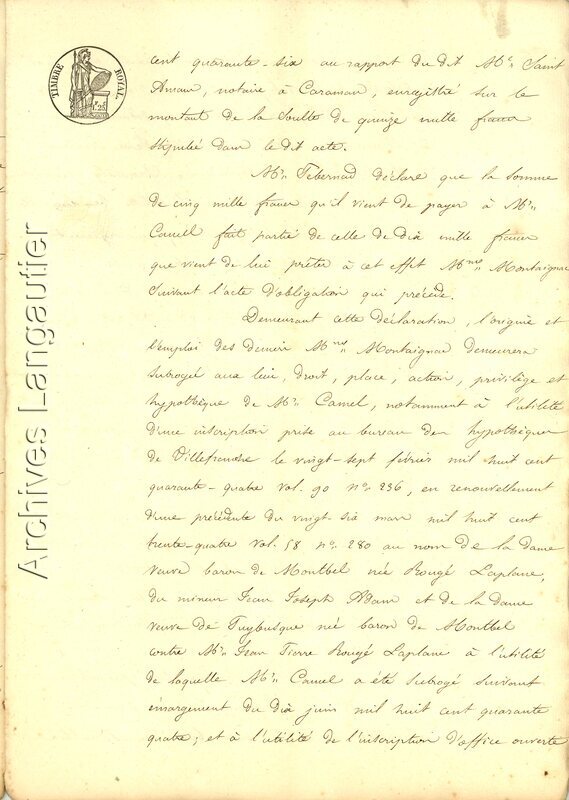 TIMBRE ROYAL.
Archives Langautier
cent quarante-six au rapport du dit Mr. Saint
Amans, notaire à Caraman, enregistré sur le
montant de la soulte de quinze mille francs
stipulée dans le dit acte.
Mr. Tebernad déclare que la somme
de cinq mille francs qu'il vient de payer à Mr.
Camel fait partie de celle de dix mille francs
que vient de lui prêter à cet effet Mme. Montaignac
suivant l'acte d'obligation qui précède.
Demeurant cette déclaration, l'origine et
l'emploi des deniers Mme. Montaignac demeurera
subrogée aux lieu, droit, place, action, privilège et
hypothèque de Mr. Camel, notamment à l'utilité
d'une inscription prise au bureau des hypothèques
de Villefranche le vingt-sept février mil huit cent
quarante-quatre vol. 90 no. 236, en renouvellement
d'une précédente du vingt-six mars mil huit cent
trente-quatre vol. 58 no. 280 au nom de la dame
veuve baron de Montbel née Rougé Laplane,
du mineur Jean Joseph Adam et de la dame
veuve de Puybusque née baron de Montbel
contre Mr. Jean Pierre Rougé Laplane à l'utilité
de laquelle Mr. Camel a été subrogé suivant
émargement du dix juin mil huit cent quarante
quatre; et à l'utilité de l'inscription d'office ouverte